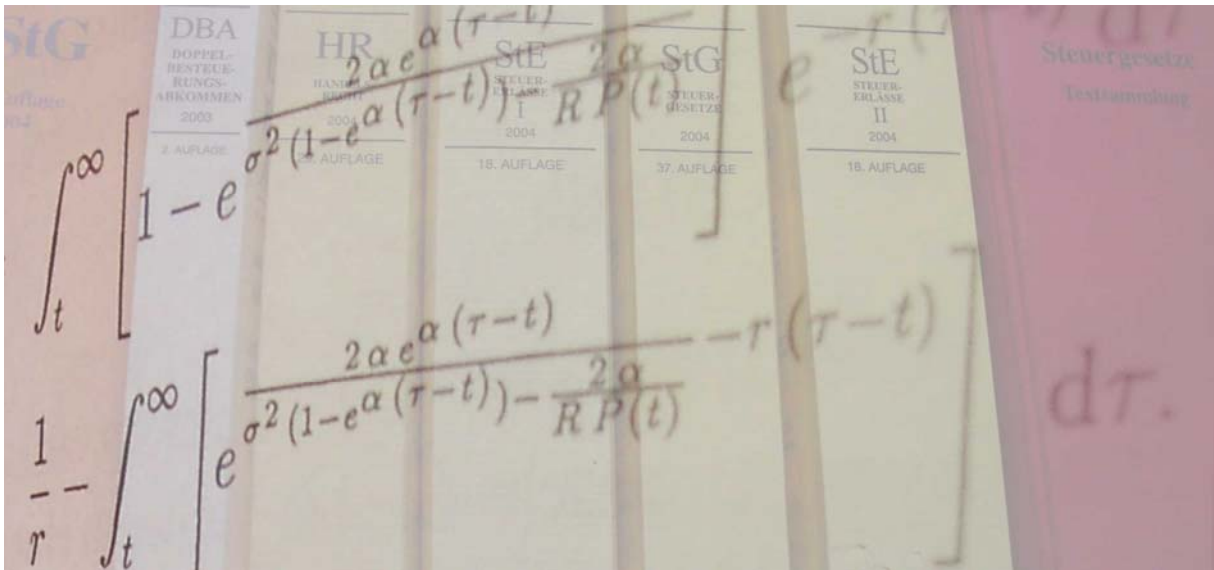 StG
DBA
DOPPEL-
BESTEUE-
RUNGS-
ABKOMMEN
2003
2. AUFLAGE
HR
2004
AUFLAGE
StE
STEUER-
ERLÄSSE
I
2004
18. AUFLAGE
StG
STEUER-
GESETZE
2004
37. AUFLAGE
StE
STEUER-
ERLÄSSE
II
2004
18. AUFLAGE
Steuergesetze
Textsammlung
∫_t^∞ [1 − e^{\frac{2αe^{α(τ−t)}}{σ^2(1−e^{α(τ−t)})−\frac{2α}{RP(t)}}}] e^{−r(
\frac{1}{r} − ∫_t^∞ [e^{\frac{2αe^{α(τ−t)}}{σ^2(1−e^{α(τ−t)})−\frac{2α}{RP(t)}}−r(τ−t)}] dτ.